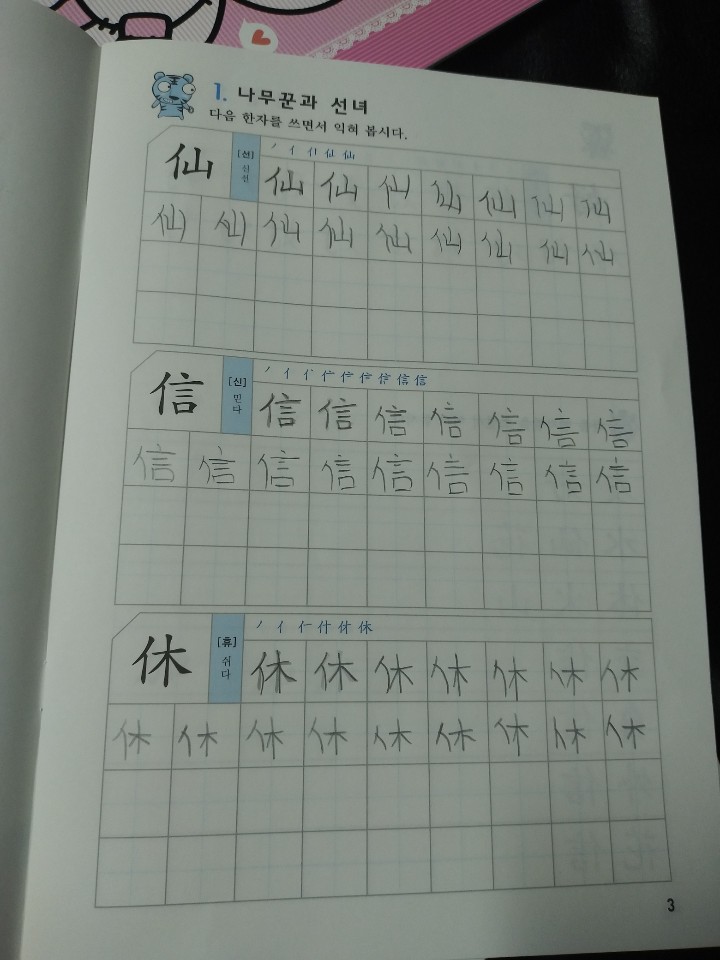 1. 나무꾼과 선녀
다음 한자를 쓰면서 익혀 봅시다.
仙 [선] 신선
丿 亻 仙 仙
仙 仙 仙 仙 仙 仙 仙
仙 仙 仙 仙 仙 仙 仙 仙 仙
信 [신] 믿다
丿 亻 信 信
信 信 信 信 信 信 信
信 信 信 信 信 信 信 信 信
休 [휴] 쉬다
丿 亻 仁 什 休 休
休 休 休 休 休 休 休
休 休 休 休 休 休 休 休 休
3